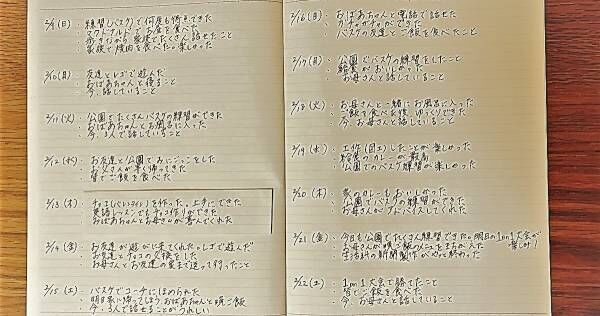 2/9(日) ・練習しバスケで何度も得点できた
・マクドナルドでお昼を食べ
家族でたくさん話せたこと
・家族で焼肉を食べた。楽しかった
2/10(月) ・友達とレゴで遊んだ
・おばあちゃんと寝ること
・今、話していること
2/11(火) ・公園でたくさんバスケの練習ができた
・おばあちゃんとお風呂に入った
・今、3人で話していること
2/12(水) ・お友達と公園でおにごっこをした
・お父さんが早く帰ってきた
・皆でご飯を食べた
2/13(木) ・チョコ(バレンタイン)を作った。上手にできた
・英語レッスンでもチョコ作りができた
・おばあちゃんとお母さんが喜んでくれた
2/14(金) ・お友達が遊びに来てくれた。レゴで遊んだ
・お友達とチョコの交換をした
・お母さんとお友達の家まで送って行ったこと
2/15(土) ・バスケでコーチにほめられた
・明日家に帰ってしまうおばあちゃんと晩ご飯
・今、3人で話せることがうれしい
2/16(日) ・おばあちゃんと電話で話せた
・ガチャガチャができた
・バスケの友達とご飯を食べたこと
2/17(月) ・公園でバスケの練習をしたこと
・給食がおいしかった
・お母さんと話していること
2/18(火) ・お母さんと一緒にお風呂に入った
・ご飯を食べた後、ゆっくりできた
・今、お母さんと話していること
2/19(水) ・工作(図工)したことが楽しかった
・給食のカレーが最高
・公園でのバスケ練習が楽しかった
2/20(木) ・家のカレーもおいしかった
・公園でバスケの練習ができた
・お母さんがアドバイスしてくれた
2/21(金) ・今日も公園でたくさん練習できた。明日の1on1大会が楽しみ!
・お母さんが晩ご飯のメニューを
・生活科の新聞製作がやっと終わった
2/22(土) ・1on1大会で勝てたこと
・皆でご飯を食べた
・今、お母さんと話していること